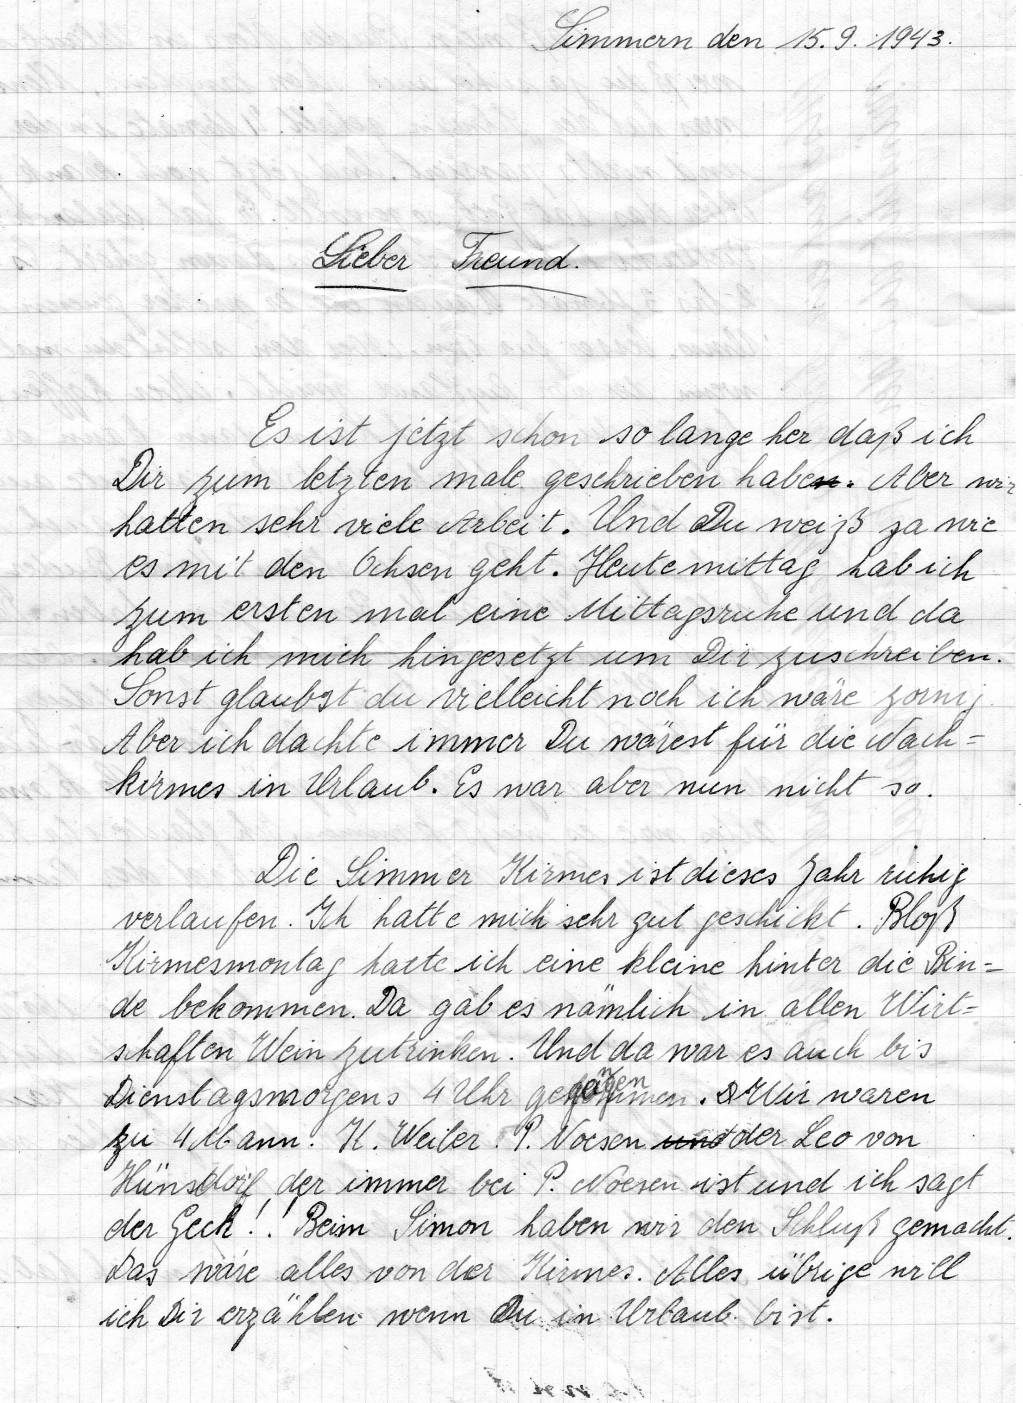 Simmern den 15.9.1943.
Lieber Freund.
Es ist jetzt schon so lange her daß ich
Dir zum letzten male geschrieben habe. Aber wir
hatten sehr viele Arbeit. Und Du weiß ja wie
es mit den Ochsen geht. Heute mittag hab ich
zum ersten mal eine Mittagsruhe und da
hab ich mich hingesetzt um Dir zuschreiben.
Sonst glaubst du vielleicht noch ich wäre zornig
Aber ich dachte immer Du wärest für die Nach=
kirmes in Urlaub. Es war aber nun nicht so.
Die Simmer Kirmes ist dieses Jahr ruhig
verlaufen. Ich hatte mich sehr gut geschickt. Bloß
Kirmesmontag hatte ich eine kleine hinter die Bin=
de bekommen. Da gab es nämlich in allen Wirt=
schaften Wein zutrinken. Und da war es auch bis
Dienstagsmorgens 4 Uhr gegangen. Wir waren
zu 4 Mann. K. Weiler. P. Noesen der Leo von
Hünsdorf der immer bei P. Noesen ist und ich sagt
der Geck!! Beim Simon haben wir den Schluß gemacht.
Das wäre alles von der Kirmes. Alles übrige will
ich Dir erzählen wenn Du in Urlaub bist.